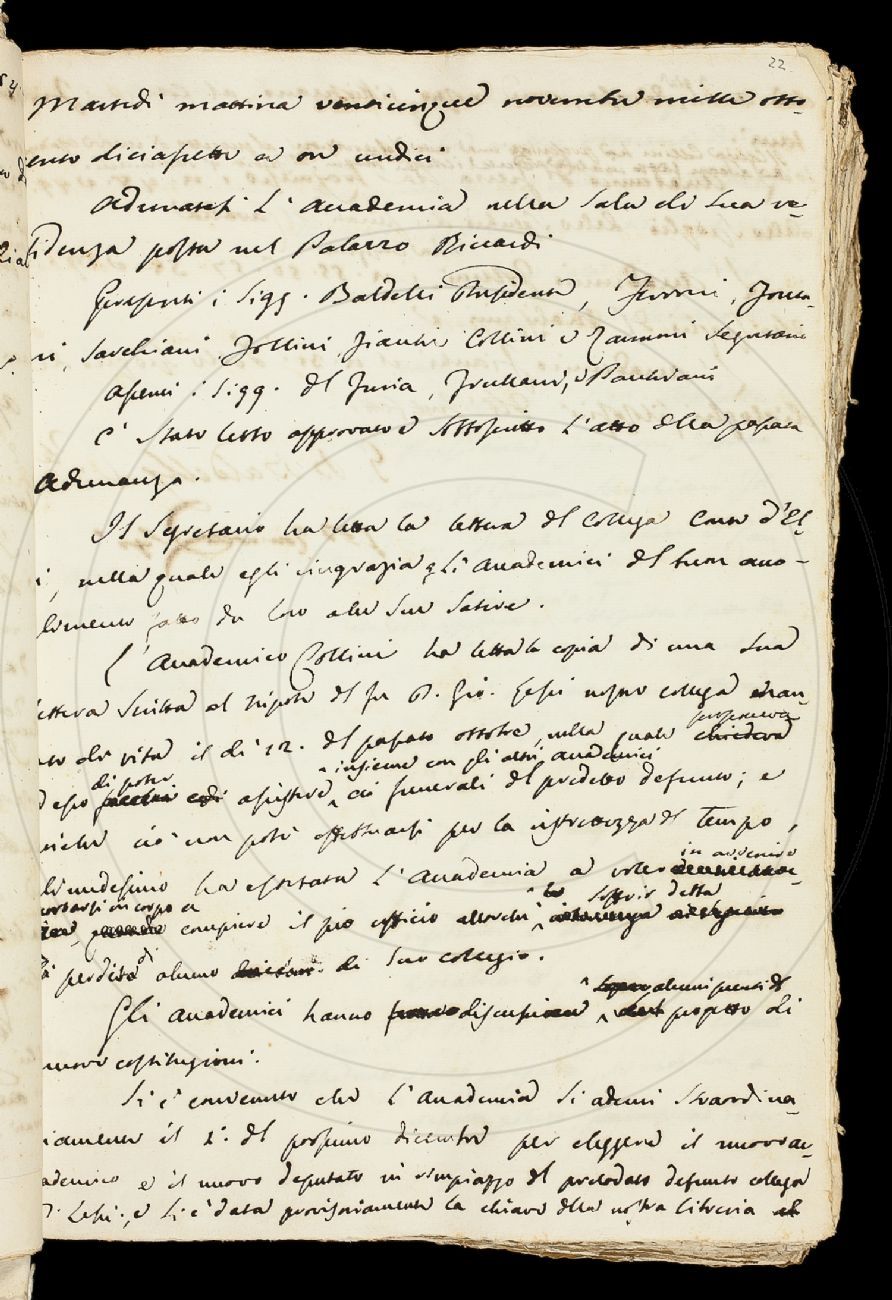 22
Martedì mattina venticinque novembre mille otto-
cento diciasette a ore undici
Adunatasi L'Accademia nella Sala di Sua re-
sidenza posta nel Palazzo Riccardi
Presenti i Sigg. Baldelli Presidente, Ferroni, Fonta-
ni, Sarchiani Follini Fiacchi Collini e Zannoni Segretario
Assenti i Sigg. del Furia, Frullani, e
È stato letto approvato e sottoscritto L'atto della passata
Adunanza.
Il Segretario ha letta la lettera del Collega Conte d'El-
ci, nella quale egli ringrazia gli Accademici del buon acco-
glimento fatto da loro alle Sue Satire.
L'Accademico Collini ha letta la copia di una Sua
lettera scritta al nipote del fu P. Gio. Lessi nostro collega man-
cato di vita il dì 12. del passato ottobre, nella quale chiedeva
insieme con gli altri accademici
di poter assistere ai funerali del predetto defunto; e
ciò non poté effettuarsi per la ristrettezza del tempo,
in avvenire
medesimo ha esortata L'Accademia a voler
in corpo a compiere il pio officio allorché
soffrir detta
perdita di alcuno di Suo collegio.
Gli Accademici hanno alcuni punti del progetto di
nuove costituzioni.
Si è convenuto che L'Accademia Si aduni Straordina-
riamente il 2. del prossimo dicembre per eleggere il nuovo ac-
cademico e il nuovo deputato in rimpiazzo del prelodato defunto collega
Lessi, e Si è data provvisoriamente la chiave della nostra Libreria al